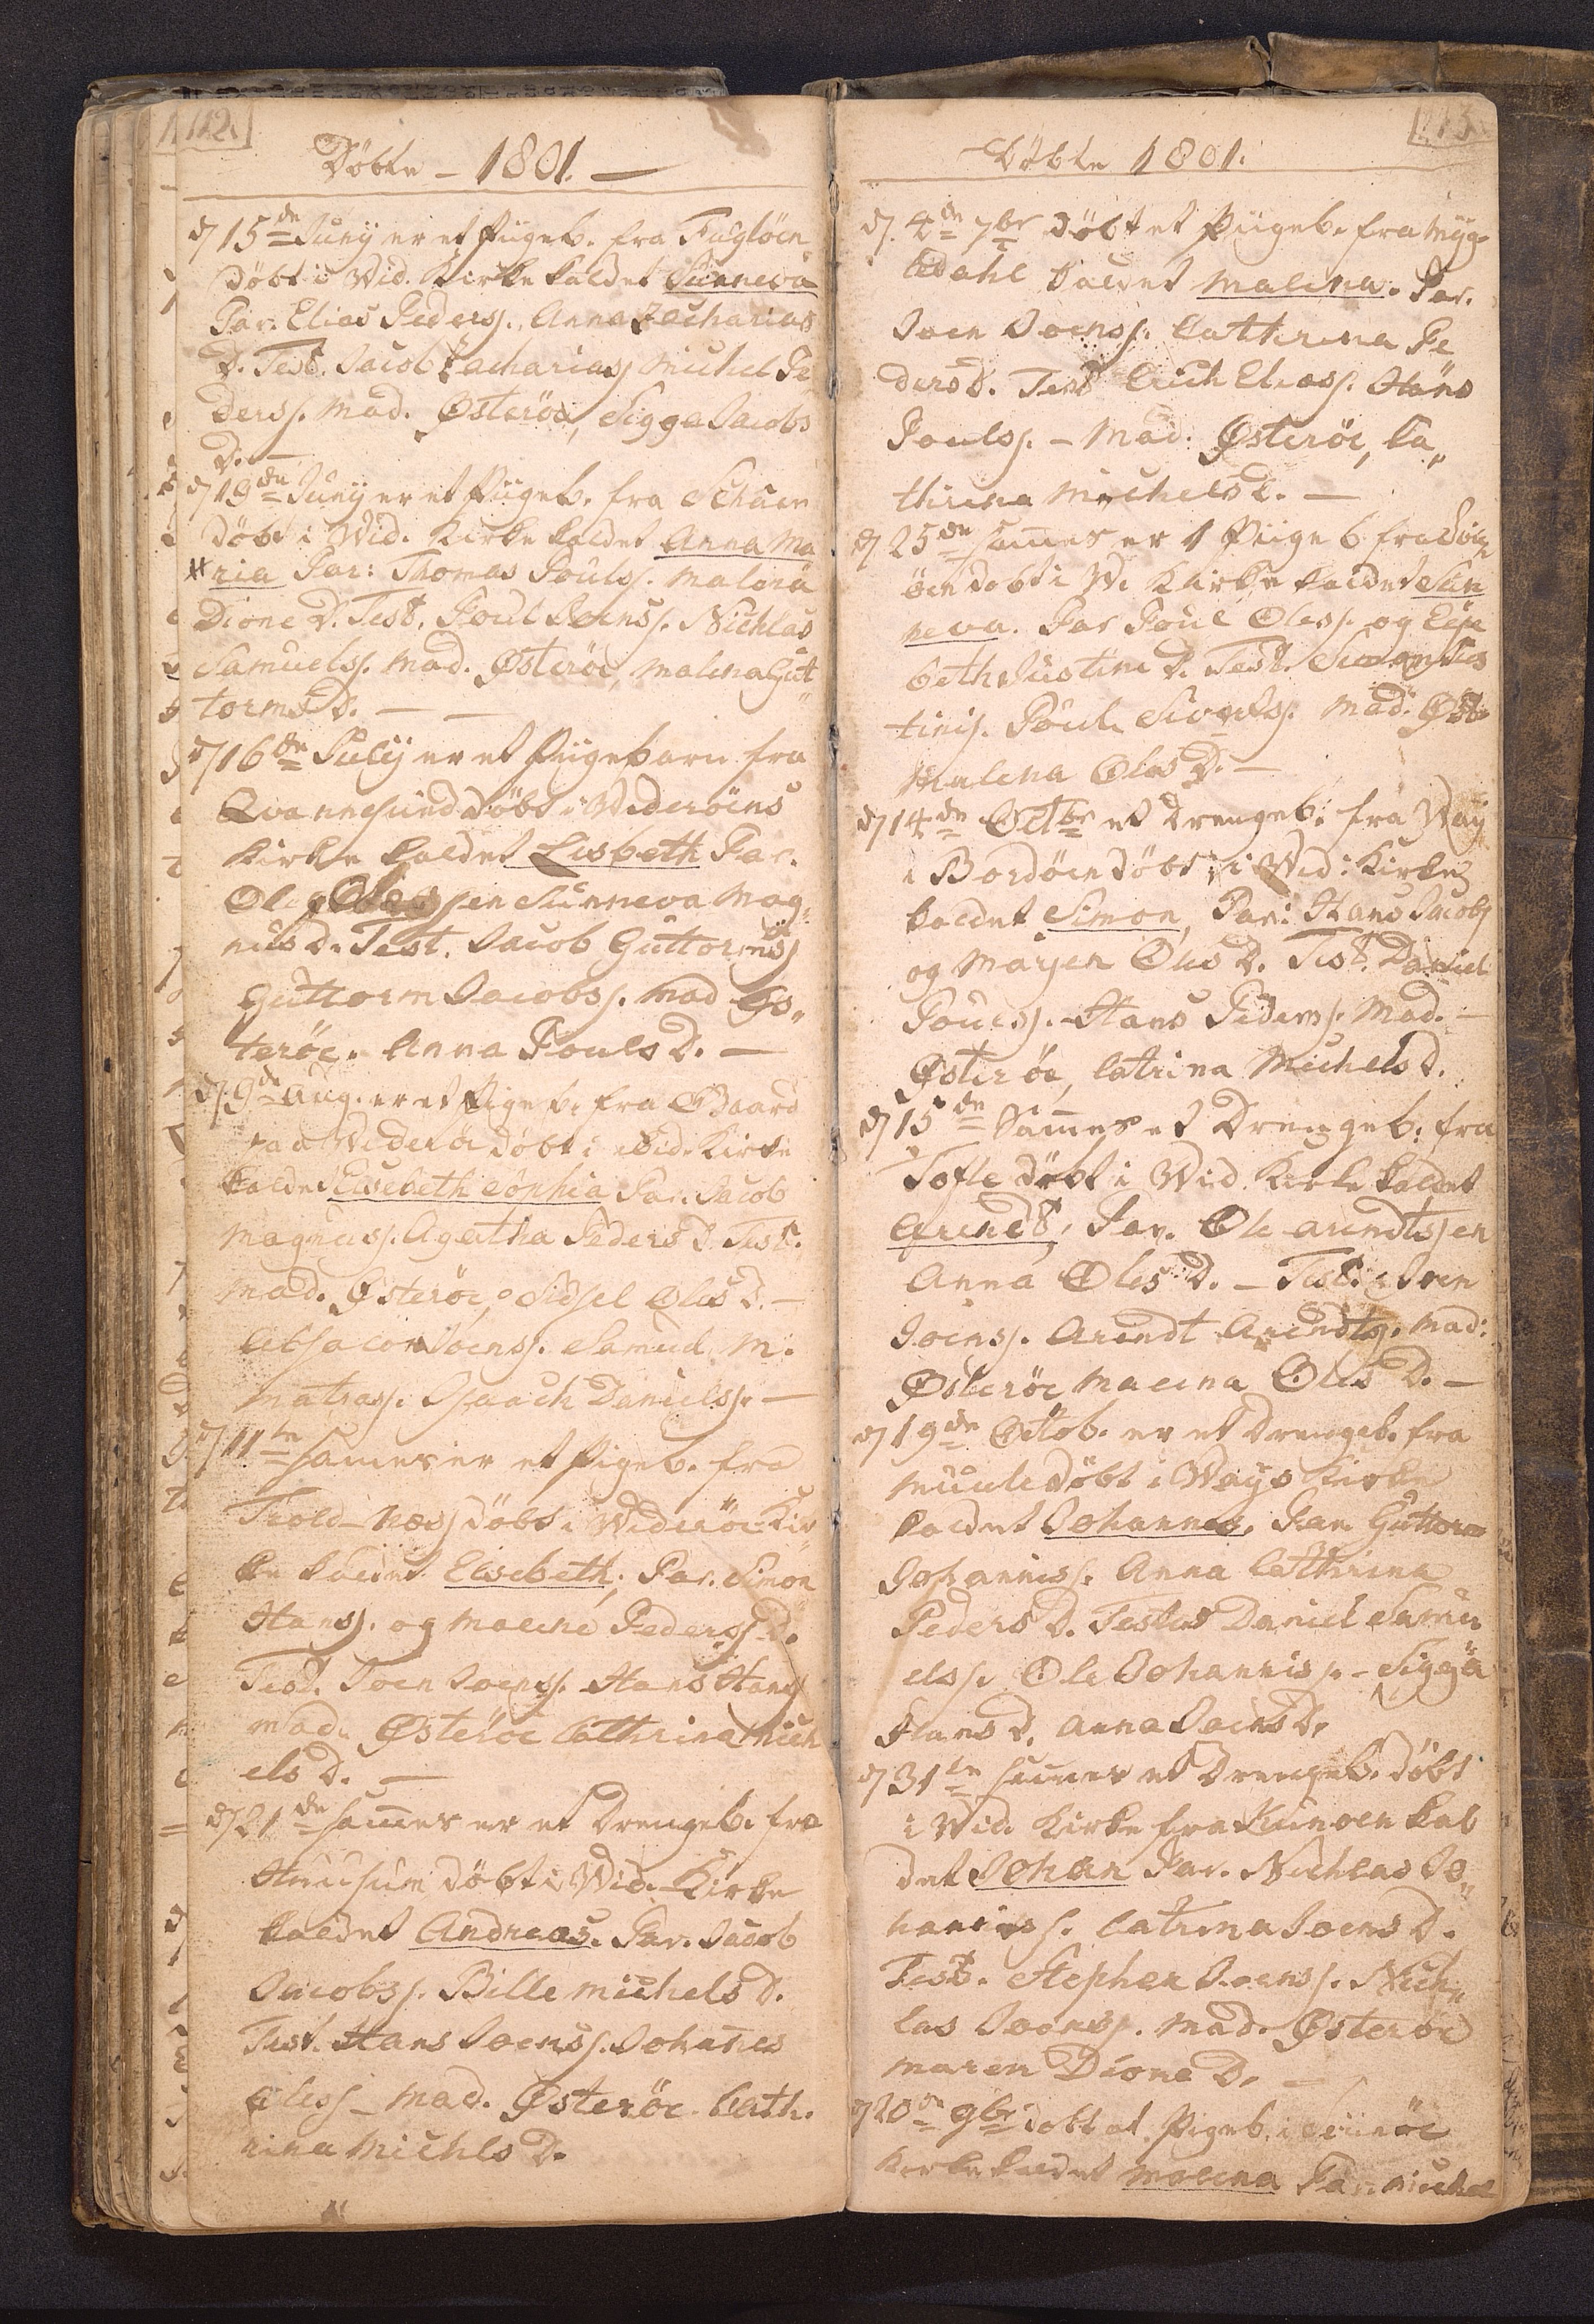 112.
Döbte - 1801. -
d 15de Juny er et Piigeb. fra Fuglöen
döbt i Wid. Kirke kaldet Sunneva
Par. Elias Peders. Anna Zacharias
D. Test. Jacob Zachariass Michel Pe
ders. Mad. Østeröe, Sigga Jacobs
D. -
d 19de Juny er et Piigeb. fra Schuen
döbt i Wid. Kirke kaldet Anna Ma
ria Par: Thomas Pouls. Malena
Dione D. Test. Poul Joens. Nichlas
Samuels. Mad. Østeröe, Malena Gut
torms D. - -
d 16de July er et Piigebarn fra
Qvannesund döbt i Wideröens
Kirke kaldet Lisbeth Par.
Ole Olessen Sunneva Mag
nus D. Test. Jacob Guttorms
Guttorm Jacobs. Mad Øs„
teröe. Anna Pouls D. -
d. 9de Aug. er et Pigeb. fra Gaard
paa Wideröe döbt i Wid. Kirke
kaldet Elsebeth Sophia Par. Jacob
Magnus. Agatha Peders D. Test.
Mad. Østeröe, Sidsel Oles D. -
Absacon Joens. Samuel M.
Matras. Isaach Daniels. -
d 11te samer er et Pigeb. fra
Trold-næs döbt i Wideröe Kir
ke kaldet Elsebeth, Par. Simon
Hans. og Malene Peders D.
Test. Joen Joens. Hans Hans
Mad. Østeröe Cathrina Mich
els D. -
d 21de samer er et Drengeb. fra
Huusum döbt i Wid. Kirke
kaldet Andreas. Par. Jacob
Jacobs. Bille Michels D.
Test. Hans Joens. Johanes
Oles - Mad. Østeröe. Cath.
rina Michls D.
113
Döbte 1801.
d. 4de 7br döbt et Piigeb. fra Myg-
dahl kaldet Malena. Par.
Joen Joens. Cathrina Pe
ders D. Test Erich Elias. Hans
Pouls. - Mad. Østeröe, Ca„
thrina Michels D. -
d 25de samer er 1 Piige b. fra Svin
öen döbt i W. Kirke kaldet Sun
neva. Par Poul Oles. og Elsse
beth Justini D. Test. Jus
tinis. Poul Siverts. Mad. Øst-
Malena Oles D. -
d 14de Octbr et Drengeb: fra Waÿ
i Bordöen döbt i Wid: Kirke
kaldet Simon, Par: Hans Jacobs
og Marjen Oles D. Test. Daniel
Pouls. - Hans Peders. Mad. -
Østeröe, Catrina Michels D.
d 15de Samer et Drengeb: fra
Tofte döbt i Wid. Kirke kaldet
Arendt, Par. Ole Arendtssen
Anna Oles D. - Test. Joen
Joens. Arendt Arendts. Mad:
Østeröe Malena Oles D. -
d 19de Octob. er et Drengeb. fra
Muule döbt i Ways Kirke
kaldet Johannes, Par. Guttorm
Johannis. Anna Cathrina
Peders D. Testes Daniel Samu
els. Ole Johannis. - Sigga
Hans D. Anna Joens D.
d 31te samer et Drengeb. döbt
i Wid. Kirke fra Kunoen kal
det Johan Par. Nichlas Jo„
hannis. Catrina Joens D.
Test. Stephen Joens. Nich„
las Joens. Mad. Østeröe
Maren Dione D. -
d 20de 9br döbt et Pigeb. i Svinöe
Kirke kaldet Malena Par. Michel